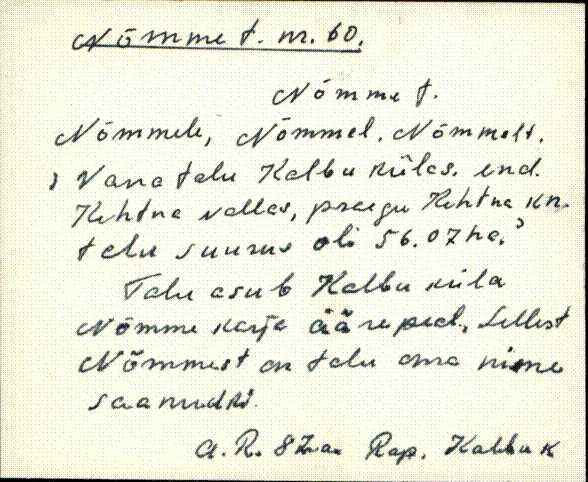 Nõmme t. nr. 60.
Nõmme t.
Nõmmele, Nõmmel. Nõmmelt.
Vana talu Kalbu külas. end.
Kehtna vallas, praegu Kehtna kn.
talu suurus oli 56.07 ha.
Talu asub Kalbu küla
Nõmme karja ääre peal. Sellest
Nõmmest on talu oma nime
saanudki.
A. R. Rap. Kalbu k